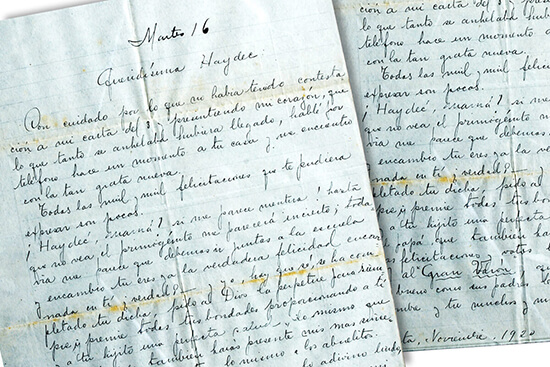 Martes 16
Queridísima Haydeé:
Con cuidado por lo que no había tenido contesta
ción a mi carta del 8 y presintiendo mi corazón, que
lo que tanto se anhelaba hubiera llegado, hablé por
teléfono hace un momento a tu casa y me encuentro
con la tan grata nueva.
Todas las mil y mil felicitaciones que te pudiera
expresar son pocas.
¡Haydeé, mamá! si me parece mentira! hasta
que no vea el primogénito me parecerá incierto; toda
vía me parece que debemos ir juntas a la escuela
y encambio tu eres ya la verdadera felicidad encar
nada en ti, ¿verdad?
y yo hoy que sé, se ha com
pletado tu dicha, pido al Dios la perpetúe para siem
pre, y premie todas tus bondades proporcionando a
a tu hijito una perfecta salud. Lo mismo que
también hazás presente mis mas sinceras
lo mismo a los abuelitos.
lo adivino lindo
ción a mi carta del 8 y
lo que tanto se anhelaba
teléfono hace un momento
con la tan grata nueva.
Todas las mil y mil felici
expresar son pocas.
¡Haydeé, mamá! si me
que no vea el primogénito
vía me parece que debemos
y encambio tu eres ya la
nada en ti, ¿verdad?
pletado tu dicha, pido al
pre, y premie todas tus bon
a tu hijito una perfecta
capá, que también haz
felicitaciones y votos
al Gran Varón, que
bueno como sus padres
y tu muchos y
Noviembre, 1920